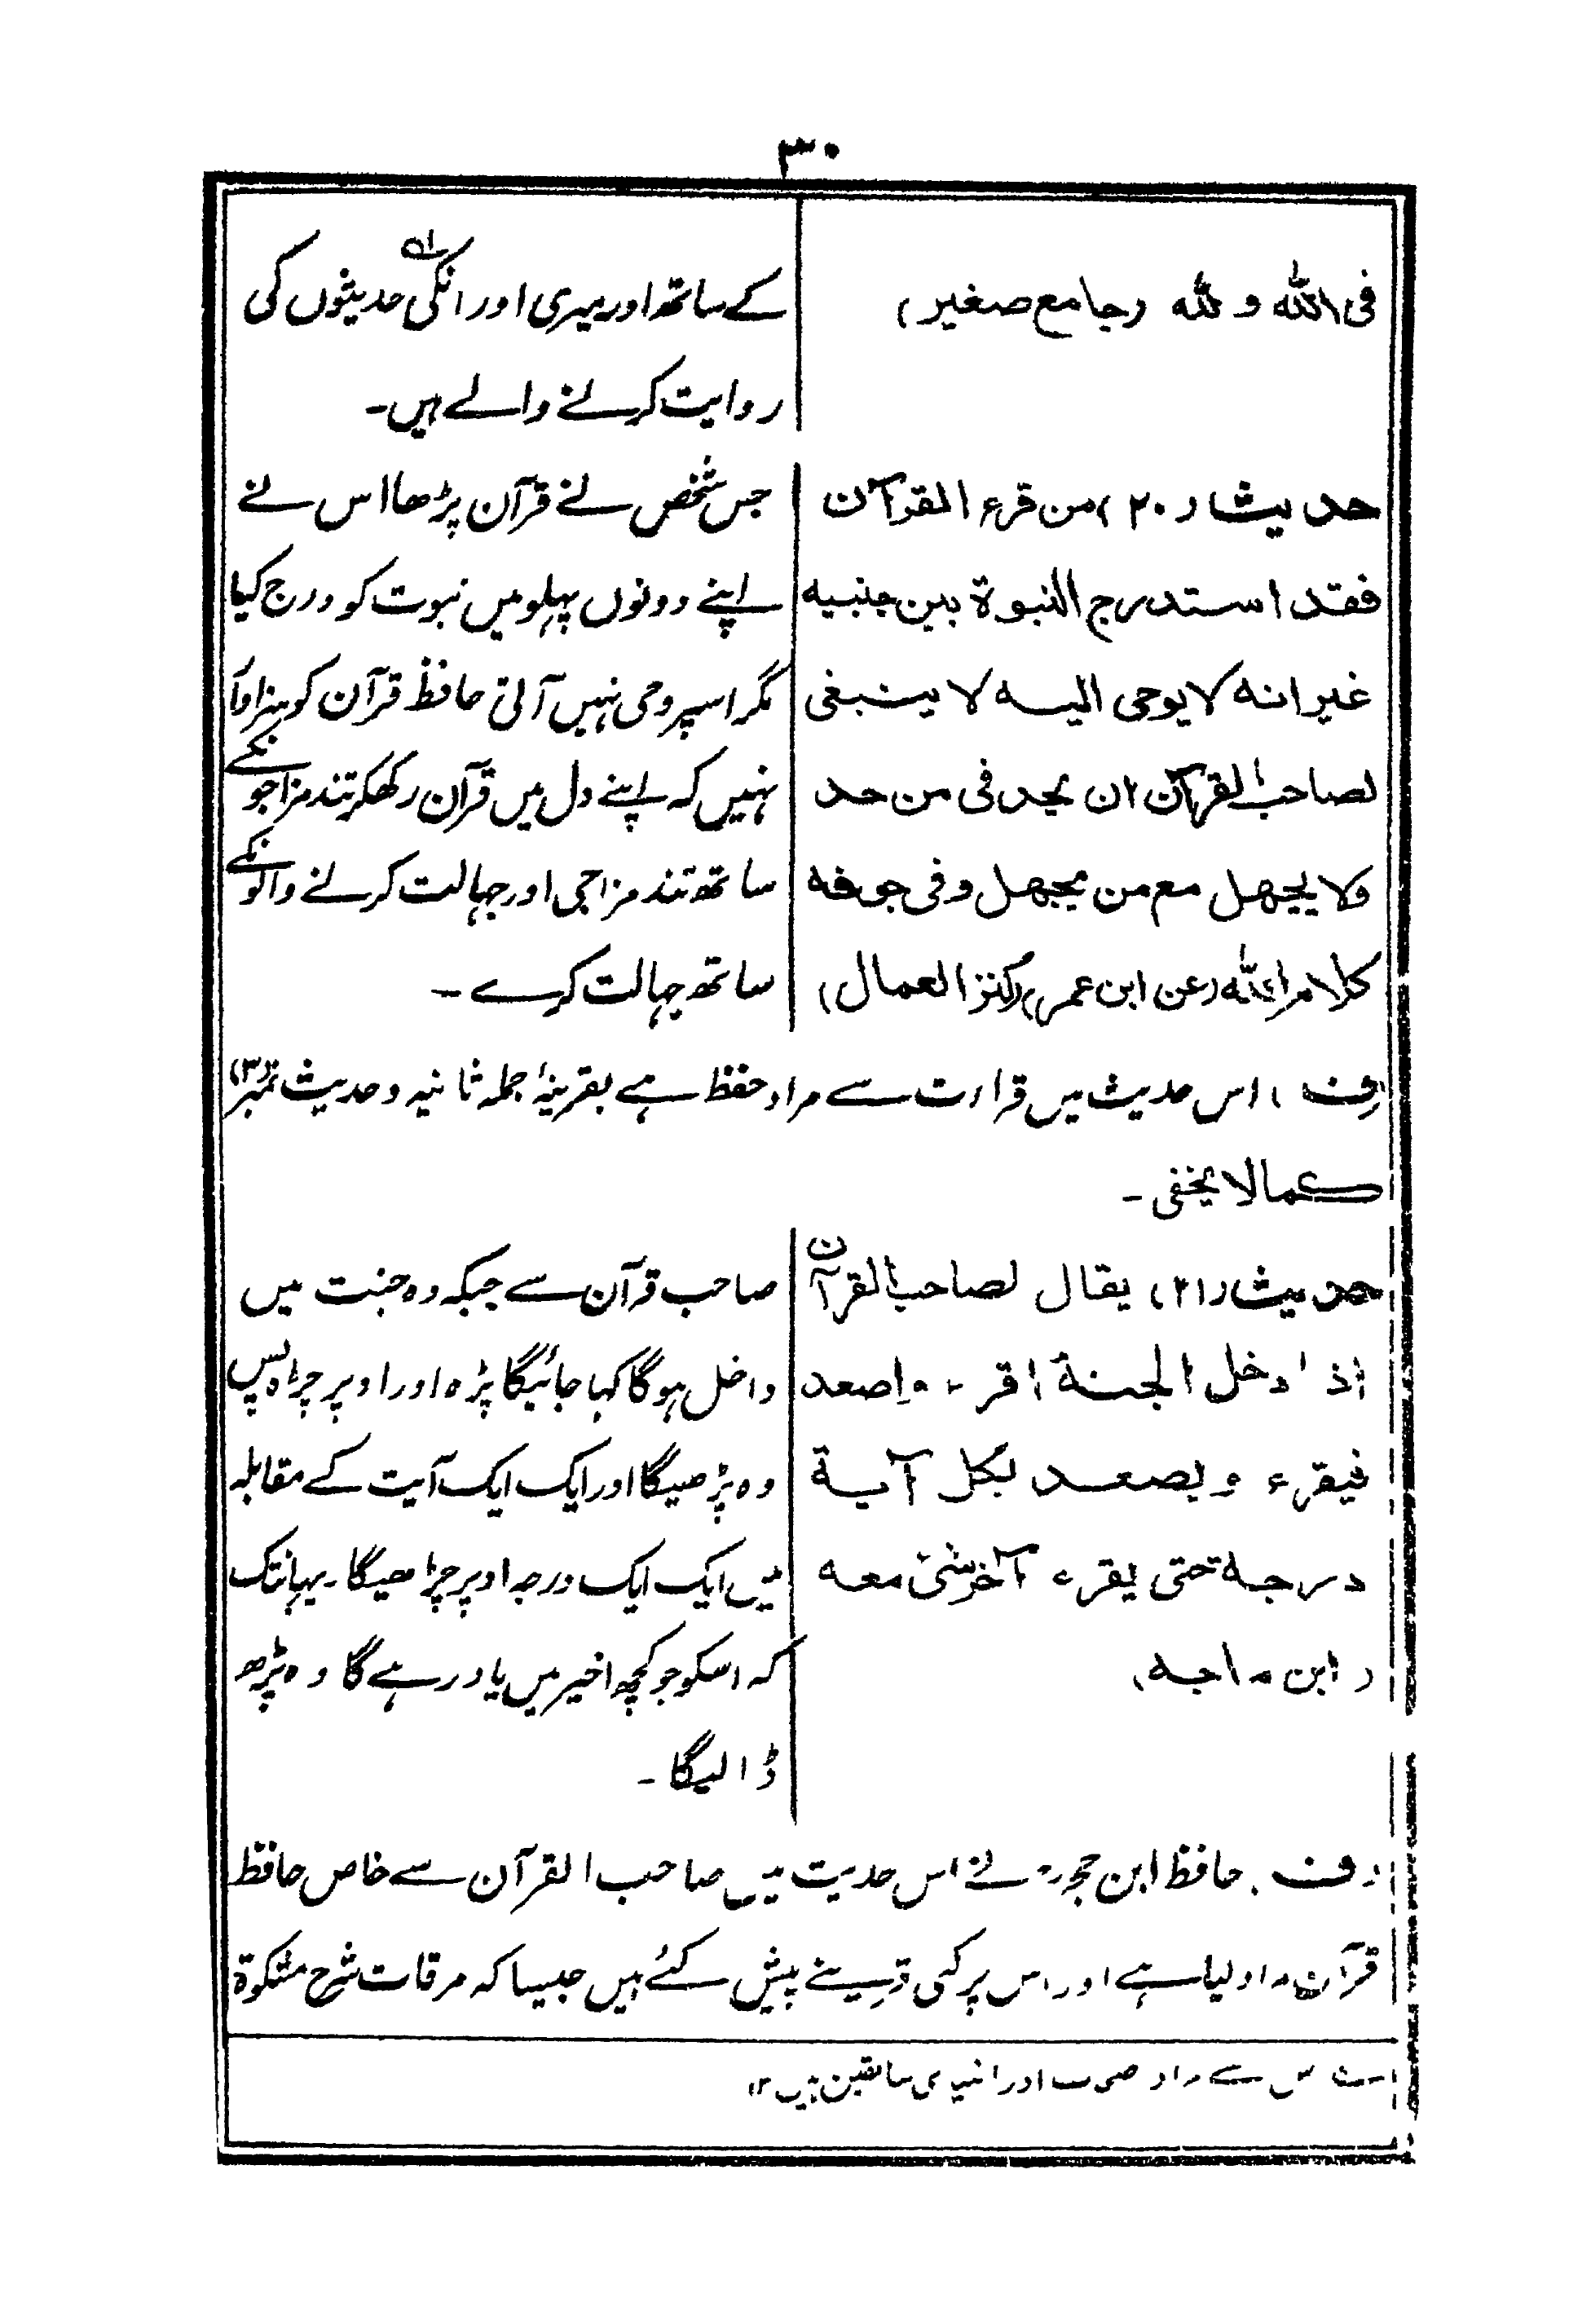 ۳۰
فی اللہ و للہ (جامع صغیر)
کے ساتھ اور میری اور انکی حدیثوں کی
روایت کرنے والے ہیں۔
حدیث (۲۰) من قرء القرآن
فقد استدرج النبوة بین جنبیه
غیر انه لا یوحی الیه لا ینبغی
لصاحب القرآن ان یجد فی من حد
ولا یجهل مع من یجهل وفی جوفه
کلام الله (عن ابن عمر) (کنز العمال)
جس شخص نے قرآن پڑھا اس نے
اپنے دونوں پہلو میں نبوت کو درج کیا
مگر اسپر وحی نہیں آتی حافظ قرآن کو سزاوار
نہیں کہ اپنے دل میں قرآن رکھکر تند مزاجونکے
ساتھ تند مزاجی اور جہالت کرنے والونکے
ساتھ جہالت کرے ۔
(ف) اس حدیث میں قراءت سے مراد حفظ ہے بقرینۂ جملہ ثانیہ و حدیث نمبر (۳)
کما لا یخفی ۔
حدیث (۲۱) یقال لصاحب القرآن
اذا دخل الجنة اقرء واصعد
فیقرء ویصعد بکل آیة
درجة حتی یقرء آخر شئ معه
(ابن ماجه)
صاحب قرآن سے جبکہ وہ جنت میں
داخل ہوگا کہا جائیگا پڑہ اور اوپر چڑہ پس
وہ پڑھیگا اور ایک ایک آیت کے مقابلہ
میں ایک ایک درجہ اوپر چڑھیگا۔ یہانتک
کہ اسکو جو کچھ اخیر میں یاد رہے گا وہ پڑھ
ڈالیگا ۔
(ف) حافظ ابن حجرؒ نے اس حدیث میں صاحب القرآن سے خاص حافظ
قرآن مراد لیا ہے اور اس پر کئی قرینے پیش کئے ہیں جیسا کہ مرقات شرح مشکوۃ
اس سے مراد صحابہ اور انبیای سابقین ہیں ۱۲